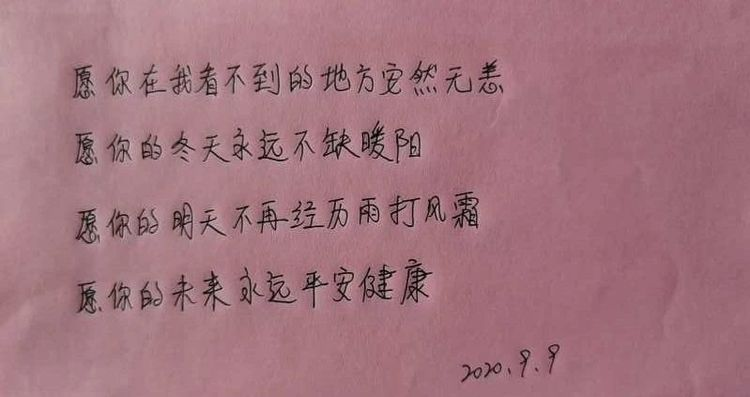 愿你在我看不到的地方安然无恙
愿你的冬天永远不缺暖阳
愿你的明天不再经历雨打风霜
愿你的未来永远平安健康
2020.9.9